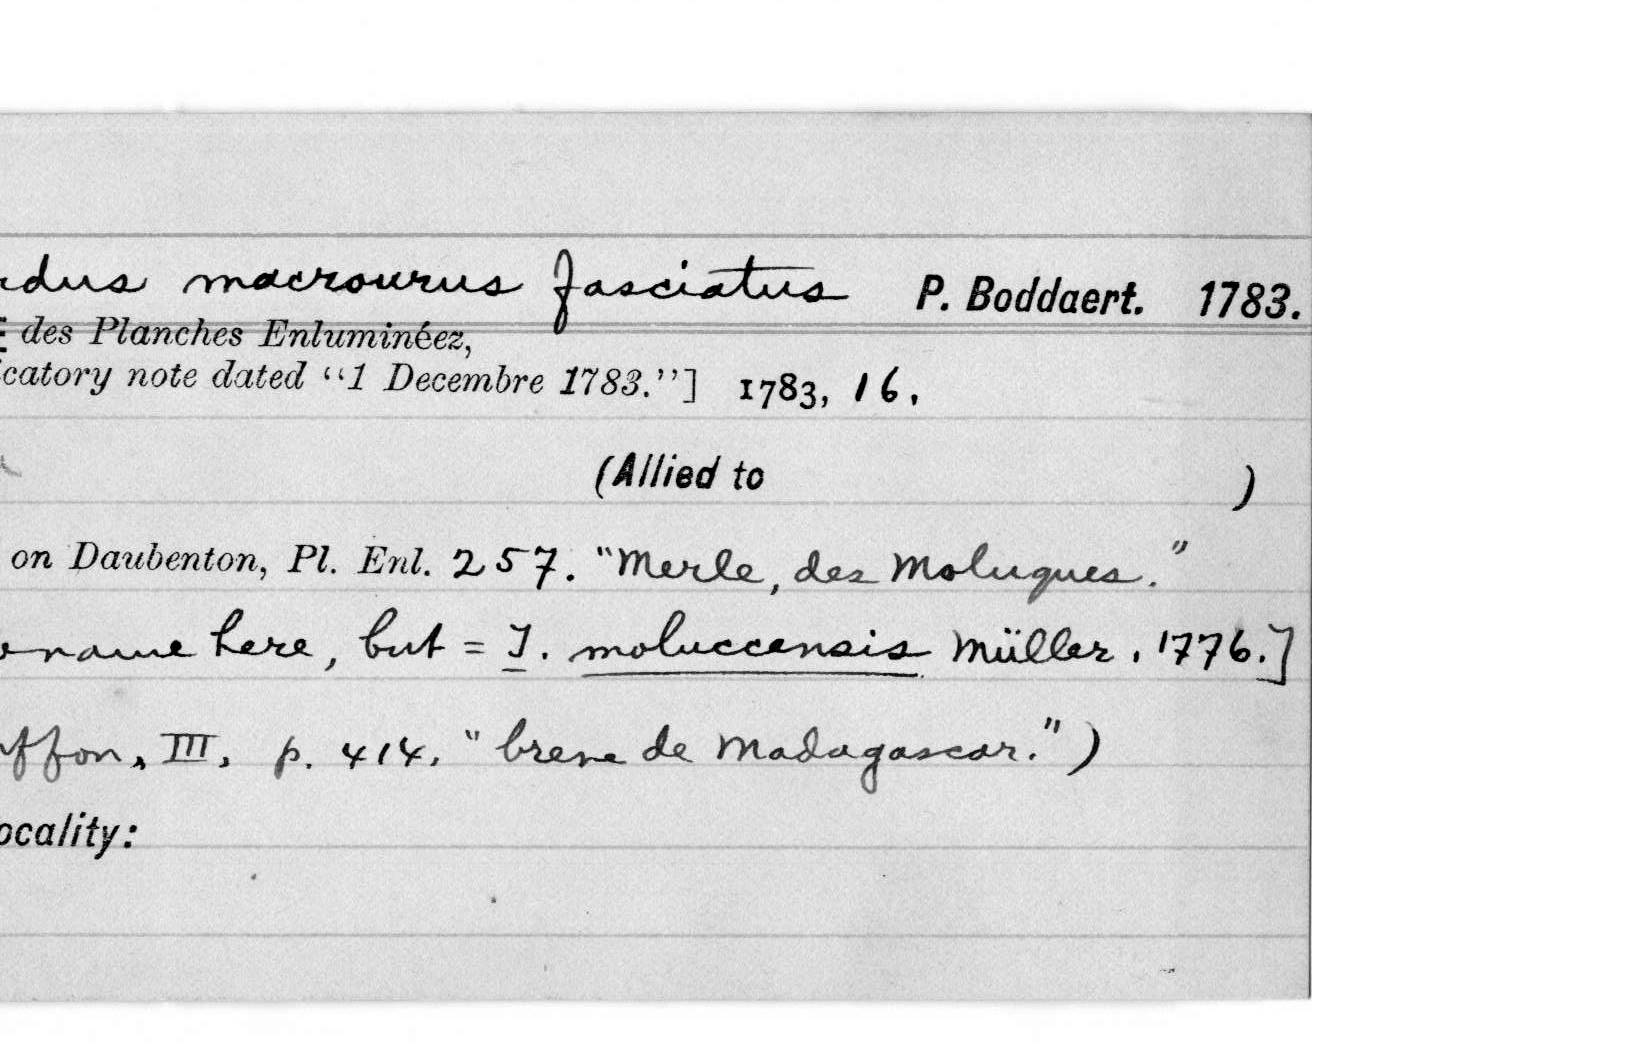 rdus macrourus fasciatus P. Boddaert. 1783.
E des Planches Enluminéez,
icatory note dated “1 Decembre 1783.”] 1783, 16.
(Allied to )
on Daubenton, Pl. Enl. 257. "Merle, des Moluques."
name here, but = T. moluccensis Müller. 1776.]
uffon, III, p. 414. "breve de Madagascar.")
ocality: